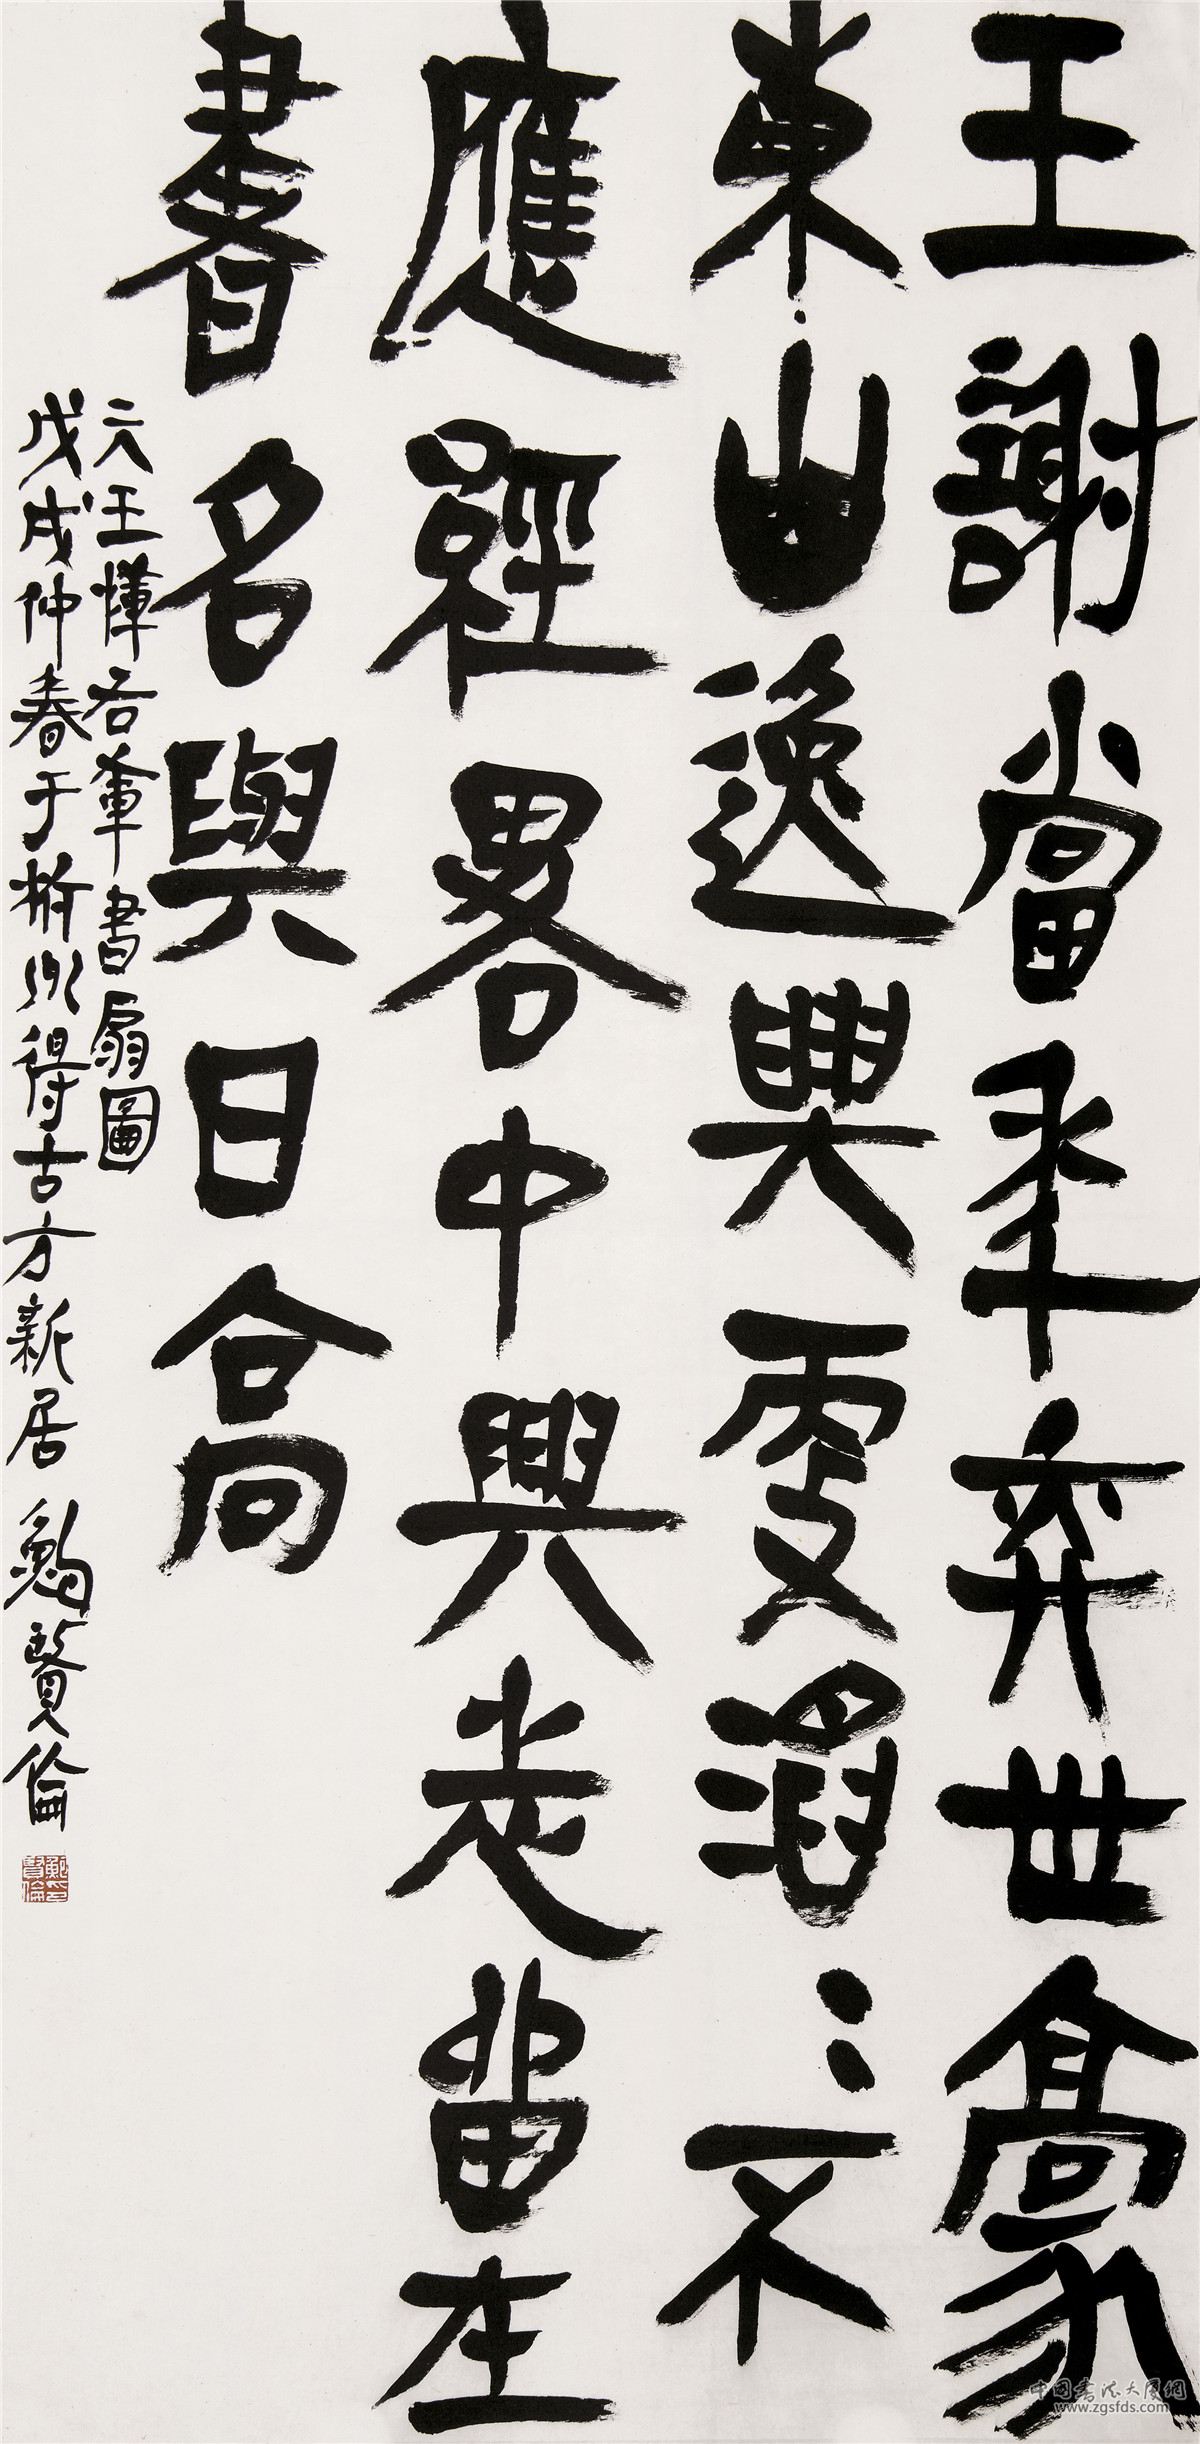 王謝當年奕世豪
東山逸興更滔〻不
應經畧中興志留在
書名與日高
元王惲右軍書扇圖
戊戌仲春于州得古方新居 鮑賢倫
鮑賢倫印
中國書法大展網
www.zgsfds.com